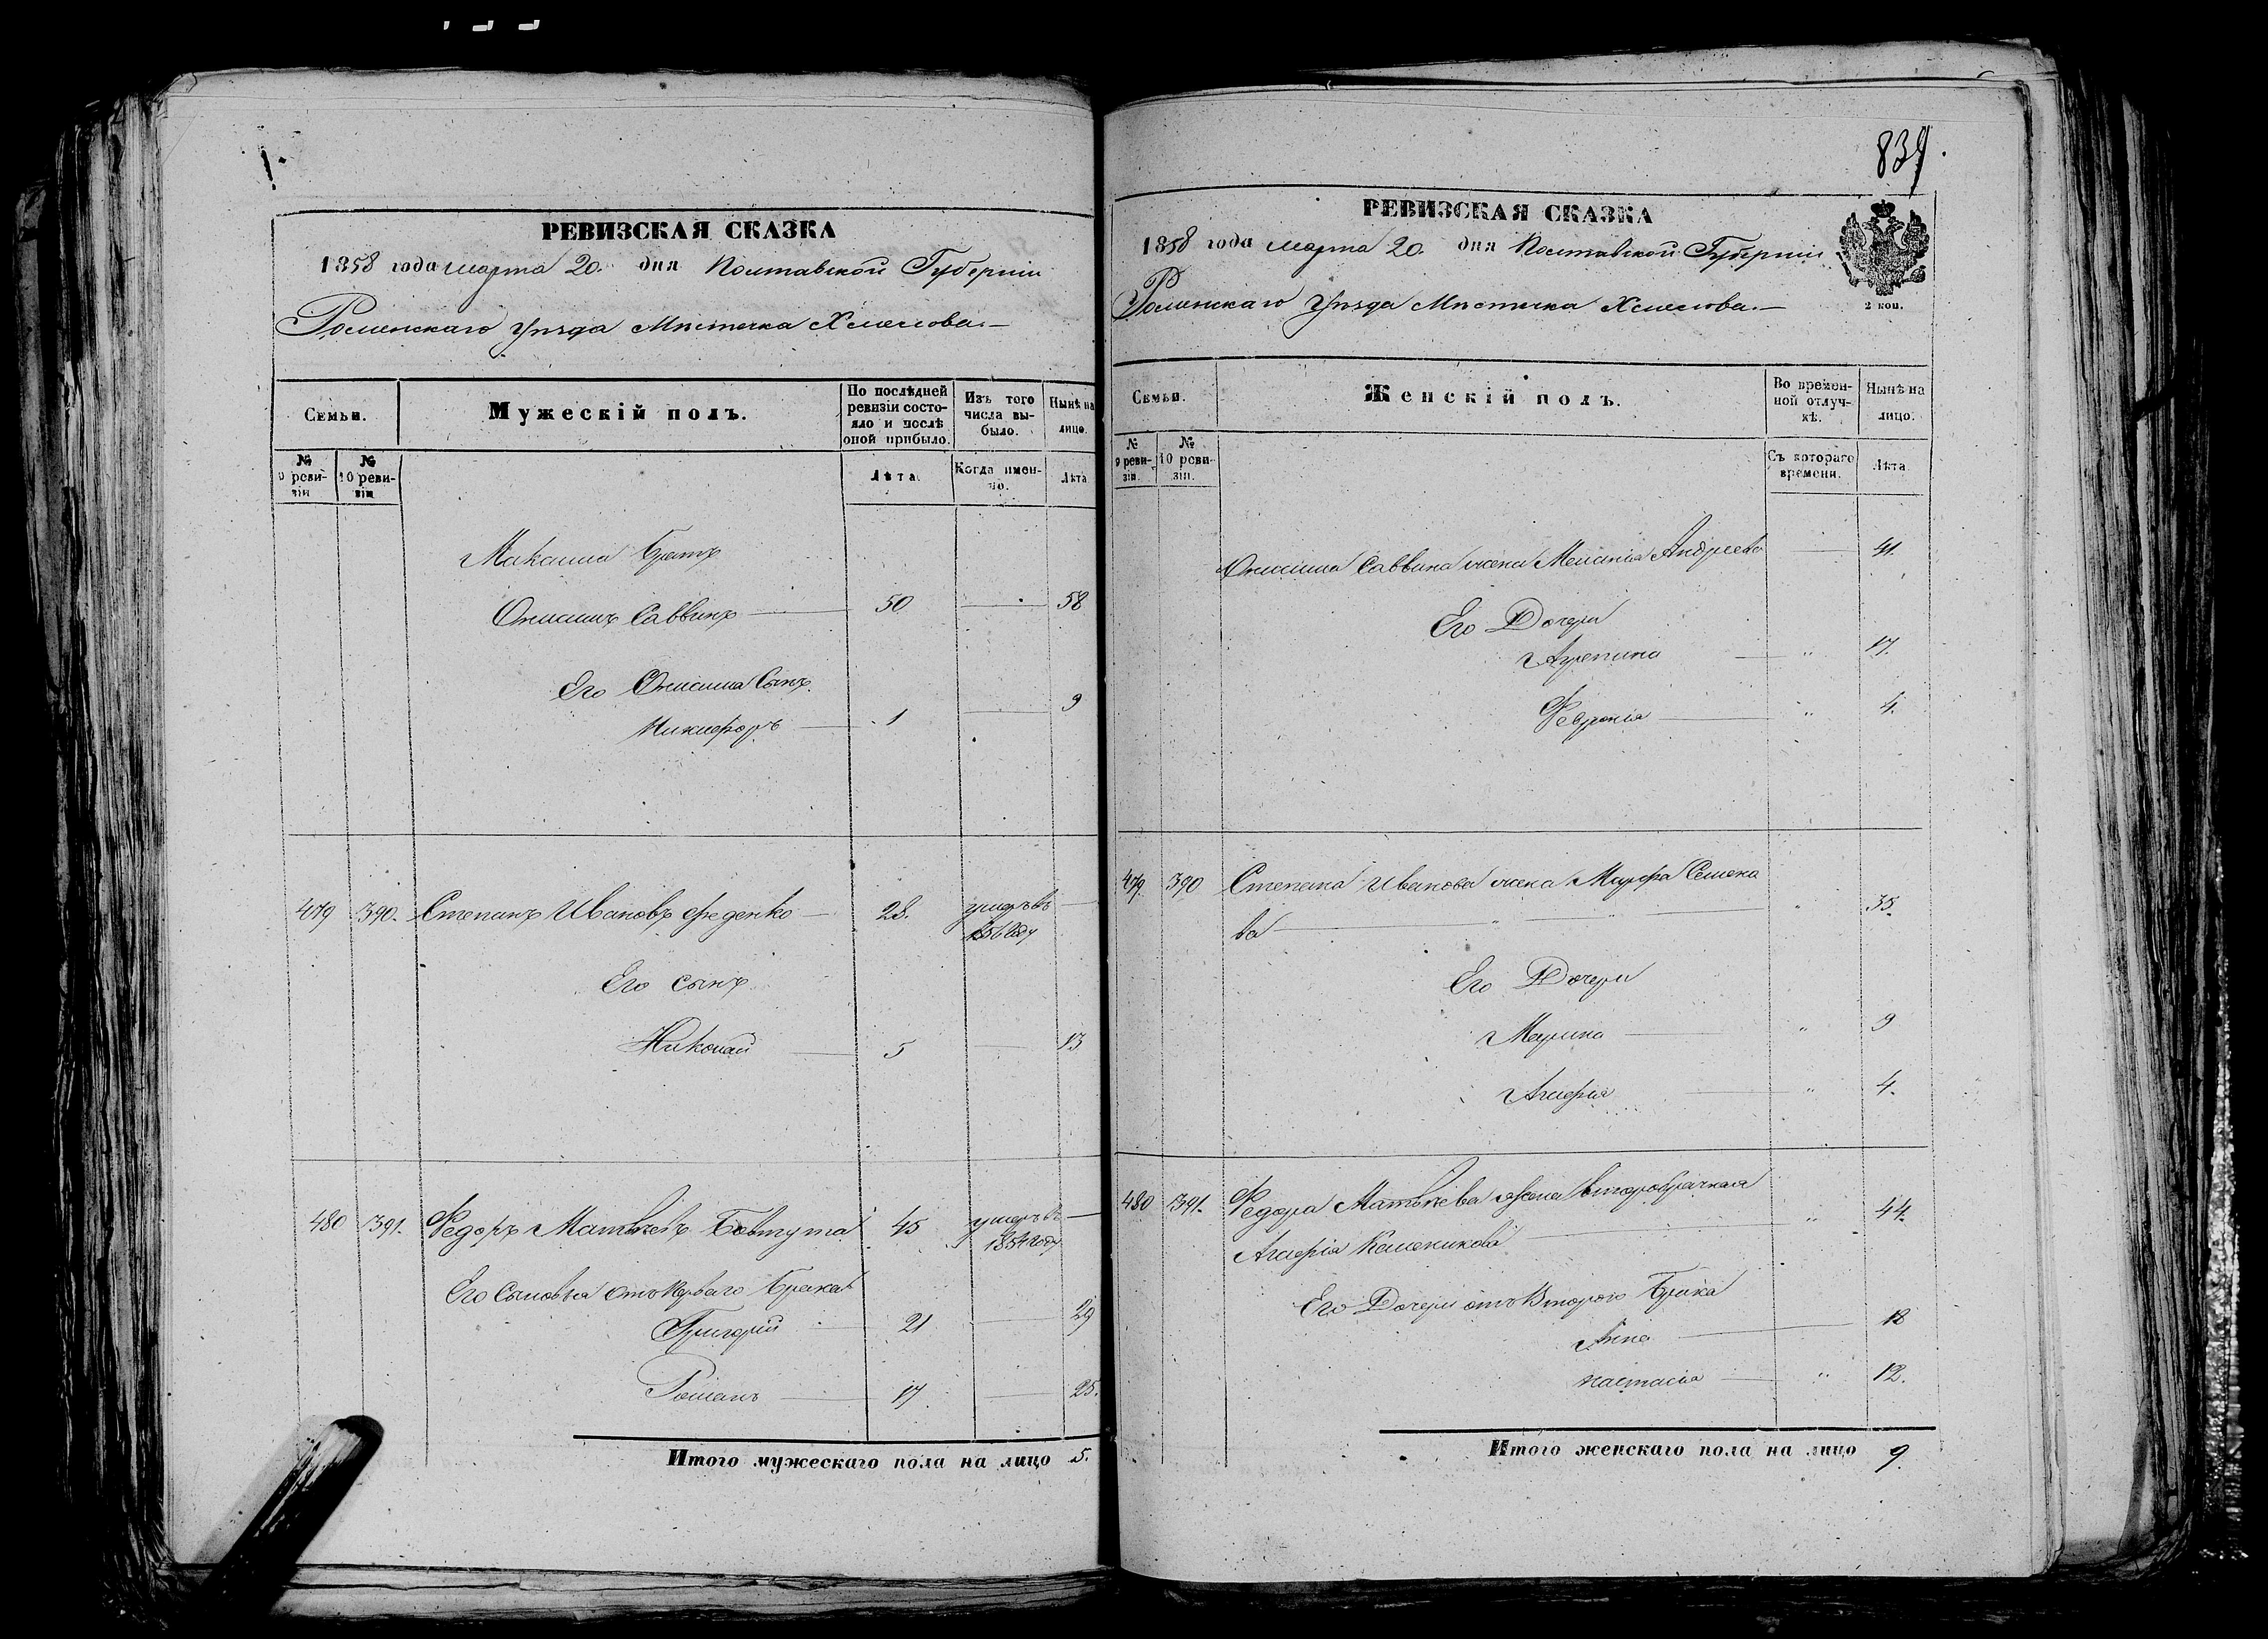 РЕВИЗСКАЯ СКАЗКА
1858 года марта 20. дня Полтавской Губерніи
Роменскаго Уѣзда Мѣстечка Хмелова.—
Семьи.
Мужескій полъ.
По послѣдней ревизіи состояло и послѣ оной прибыло.
Изъ того числа выбыло.
Нынѣ на лицо.
№ 9 ревизіи
№ 10 ревизіи
Лѣта.
Когда именно.
Лѣта
Макаима братъ
Онисимъ Саввинъ — 50 — 58
Его Онисима Сынъ
Никифоръ — 1 — 9
479 390. Степанъ Ивановъ Феденко — 28. умеръ въ —
1856 году
Его сынъ
Николай — 5 — 13
480 391. Федоръ Матвѣевъ Бовтута 45 умеръ въ —
1854 году
Его Сыновья отъ перваго брака
Григорій — 21 — 29
Романъ — 17 — 25.
Итого мужескаго пола на лицо 5.
839.
РЕВИЗСКАЯ СКАЗКА
1858 года марта 20. дня Полтавской Губерніи
Роменскаго Уѣзда Мѣстечка Хмелова.—
2 коп.
Семьи.
Женскій полъ.
Во временной отлучкѣ.
Нынѣ на лицо.
№ 9 ревизіи.
№ 10 ревизіи.
Съ котораго времени.
Лѣта
Онисима Саввина жена Меланія Андреева — 41.
Его Дочери
Агрепина — " 17.
Февронія — " 4.
479. 390 Степана Иванова жена Марфа Семено
ва — " 35.
Его Дочери
Марина — " 9
Агафія — " 4.
480 391. Федора Матвѣева жена второбрачная
Агафія Каленикова — " 44.
Его Дочери отъ Второго Брака
Анна — 18
Настасія — " 12.
Итого женскаго пола на лицо 9.